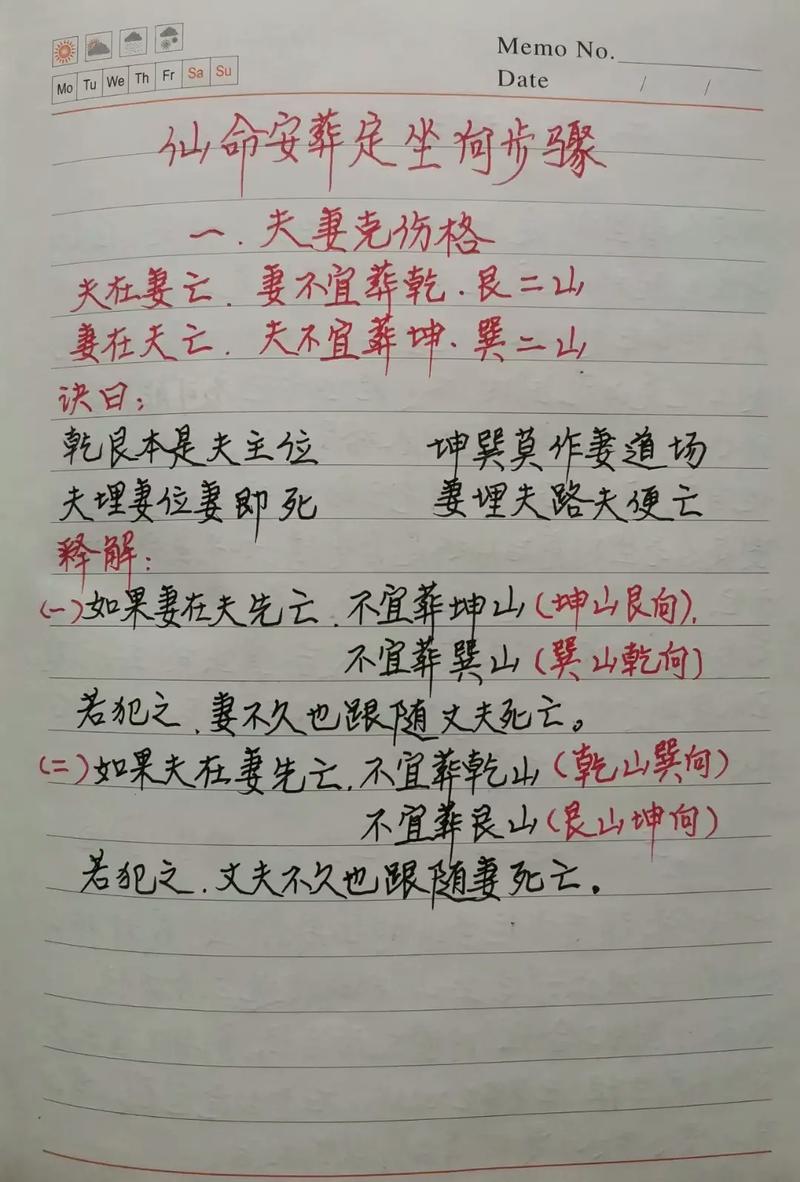 Memo No.
Mo Tu We Th Fr Sa Su
Date / /
仙命安葬定坐向步骤
一.夫妻克伤格
夫在妻亡.妻不宜葬乾.艮二山
妻在夫亡.夫不宜葬坤.巽二山
诀曰:
乾艮本是夫主位 坤巽莫作妻道场
夫埋妻位妻即死 妻埋夫路夫便亡
释解:
(一)如果妻在夫先亡.不宜葬坤山(坤山艮向),
不宜葬巽山(巽山乾向)
若犯之.妻不久也跟随丈夫死亡。
(二)如果夫在妻先亡.不宜葬乾山(乾山巽向)
不宜葬艮山(艮山坤向)
若犯之.丈夫不久也跟随妻死亡。